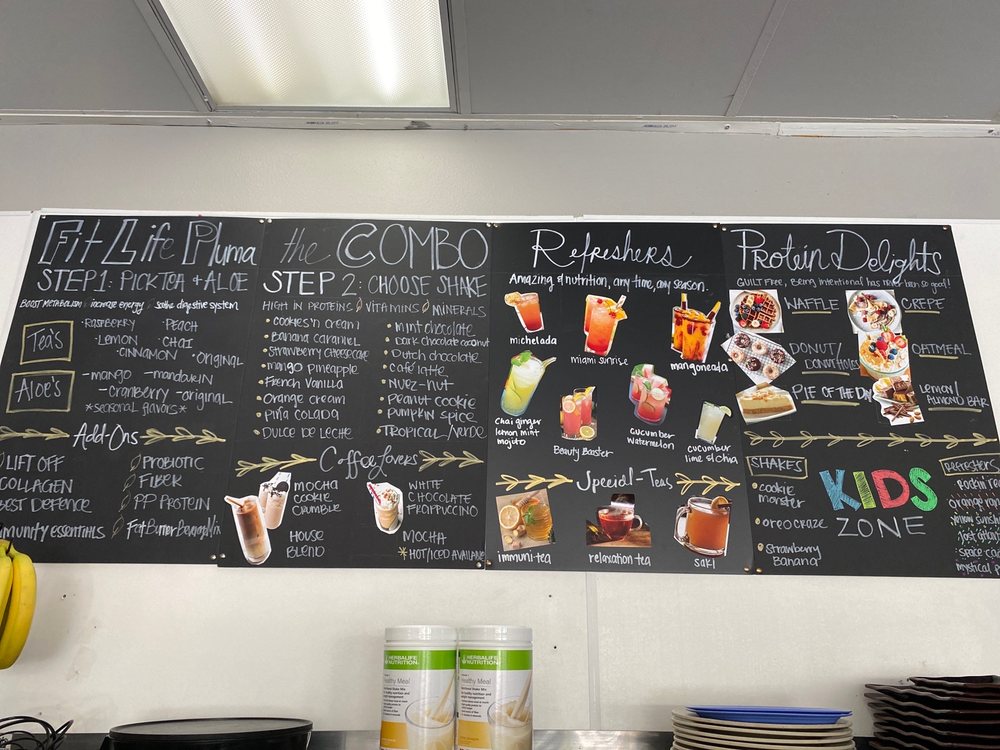 Fit Life Pluma
STEP 1: PICK TEA + ALOE
BOOST METABOLISM, increase energy, sothe digestive system
Tea's
·RASPBERRY
·PEACH
·LEMON
·CHAI
·CINNAMON
·ORIGINAL
Aloe's
-mango -mandarin
-cranberry -original
*seasonal flavors*
Add-Ons
LIFT OFF
COLLAGEN
BEST DEFENCE
immunity essentials
PROBIOTIC
FIBER
PP PROTEIN
the COMBO
STEP 2: CHOOSE SHAKE
HIGH IN PROTEINS VITAMINS MINERALS
COOKIES'n cream
Banana caramel
Strawberry cheesecake
mango pineapple
French Vanilla
Orange cream
Piña colada
DULCE DE LECHE
mint chocolate
Dark chocolate coconut
Dutch chocolate
cafe latte
Nuez-nut
Peanut cookie
Pumpkin spice
TROPICAL/VERDE
Coffee Lovers
MOCHA
COOKIE
CRUMBLE
HOUSE
BLEND
WHITE
CHOCOLATE
FRAPPUCCINO
MOCHA
*HOT/ICED AVAILABLE
Refreshers
Amazing nutrition, any time, any season.
michelada
miami sunrise
mangoneada
Chai ginger
lemon mint
mojito
Beauty Booster
cucumber
watermelon
cucumber
lime s/chia
Special-Teas
immuni-tea
relaxation tea
saki
Protein Delights
GUILT FREE, Being intentional has never been so good!
WAFFLE
CREPE
DONUT/
DONUT HOLES
OATMEAL
PIE OF THE DAY
LEMON/
ALMOND BAR
KIDS
ZONE
SHAKES
cookie
monster
oreo craze
strawberry
Banana
REFRESHERS
HERBALIFE
NUTRITION
Healthy Meal
HERBALIFE
NUTRITION
Healthy Meal